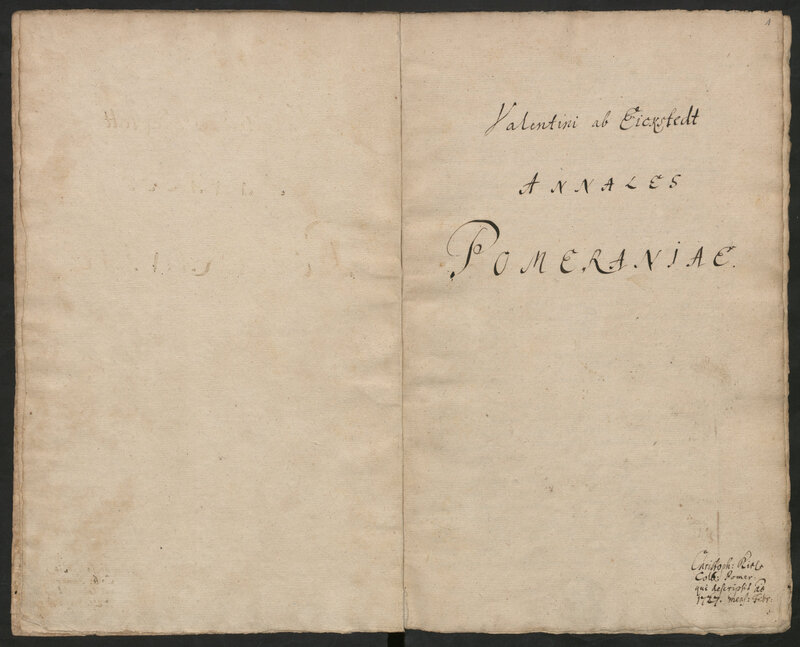 1
Valentini ab Eickstedt
ANNALES
POMERANIAE.
Christoph:
Colb: Pomer.
qui descripsit Ao
1727. mens: Febr.